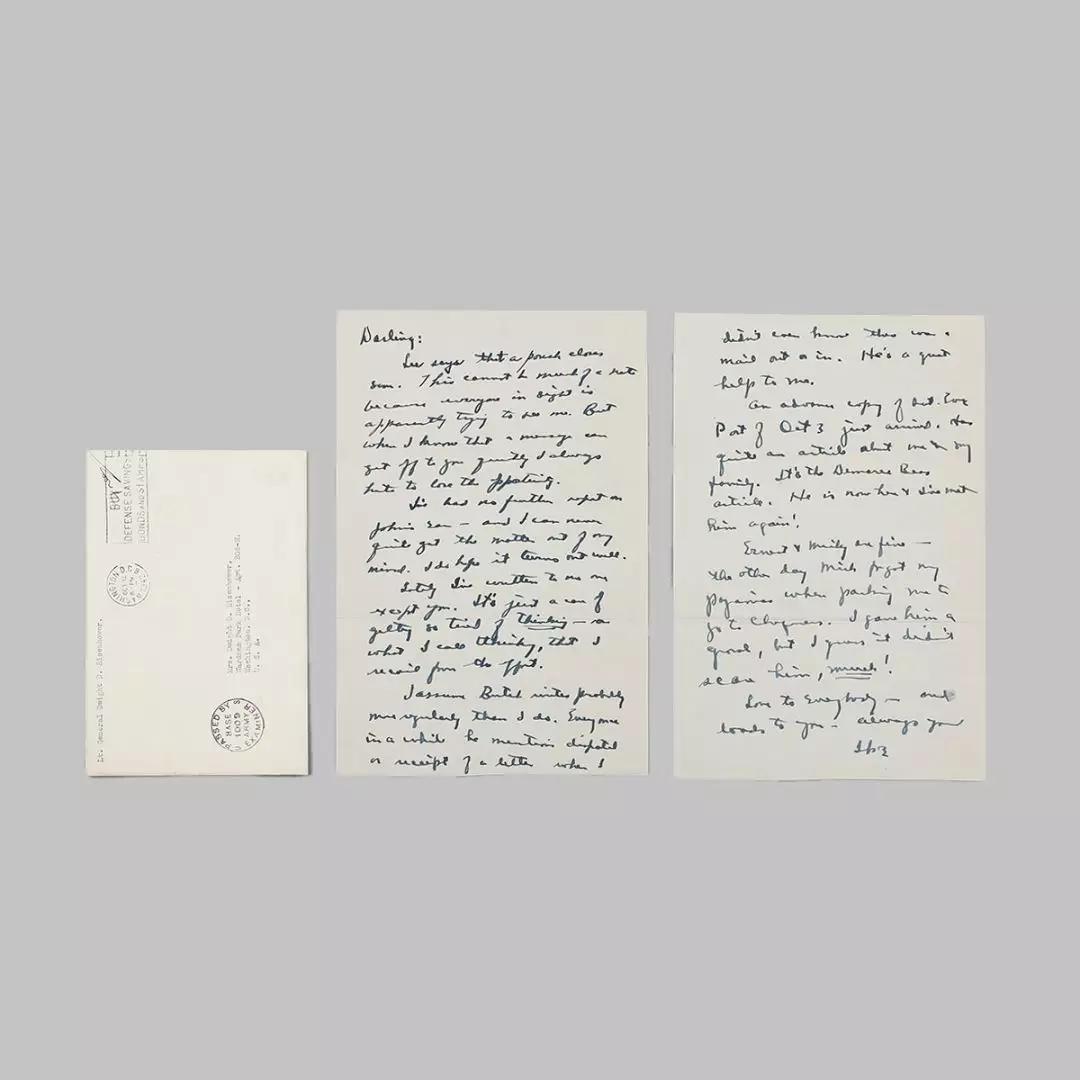 BUY
DEFENSE SAVINGS
BONDS AND STAMPS
WASHINGTON
Lt. General Dwight D. Eisenhower.
Mrs. Dwight D. Eisenhower,
Wardman Park Hotel - Apt.
Washington, D.C.,
U. S. A.
PASSED BY
BASE
1009
ARMY
EXAMINER
Darling:
Lee says that a pouch closes
soon. This cannot be much of a note
because everyone in sight is
apparently trying to see me. But
when I know that a message can
get off to you quickly I always
hate to lose the opportunity.
I've had no further report on
John's ear — and I can never
quite get the matter out of my
mind. I do hope it turns out well.
Lately I've written to no one
except you. It's just a case of
getting so tired of thinking — or
what I call thinking, that I
recoil from the effort.
I assume Butch writes probably
more regularly than I do. Every once
in a while he mentions dispatch
or receipt of a letter when I
didn't even know there was a
mail out or in. He's a great
help to me.
An advance copy of Sat. Eve
Post of Oct 3 just arrived. Has
quite an article about me & my
family. It's the Demaree Bess
article. He is now here & I've met
him again!
Ernest & Mickey are fine —
the other day Mick forgot my
pajamas when packing me to
go to . I gave him a
growl, but I guess it didn't
scare him, much!
Love to Everybody — and
loads to you — always your
Ike